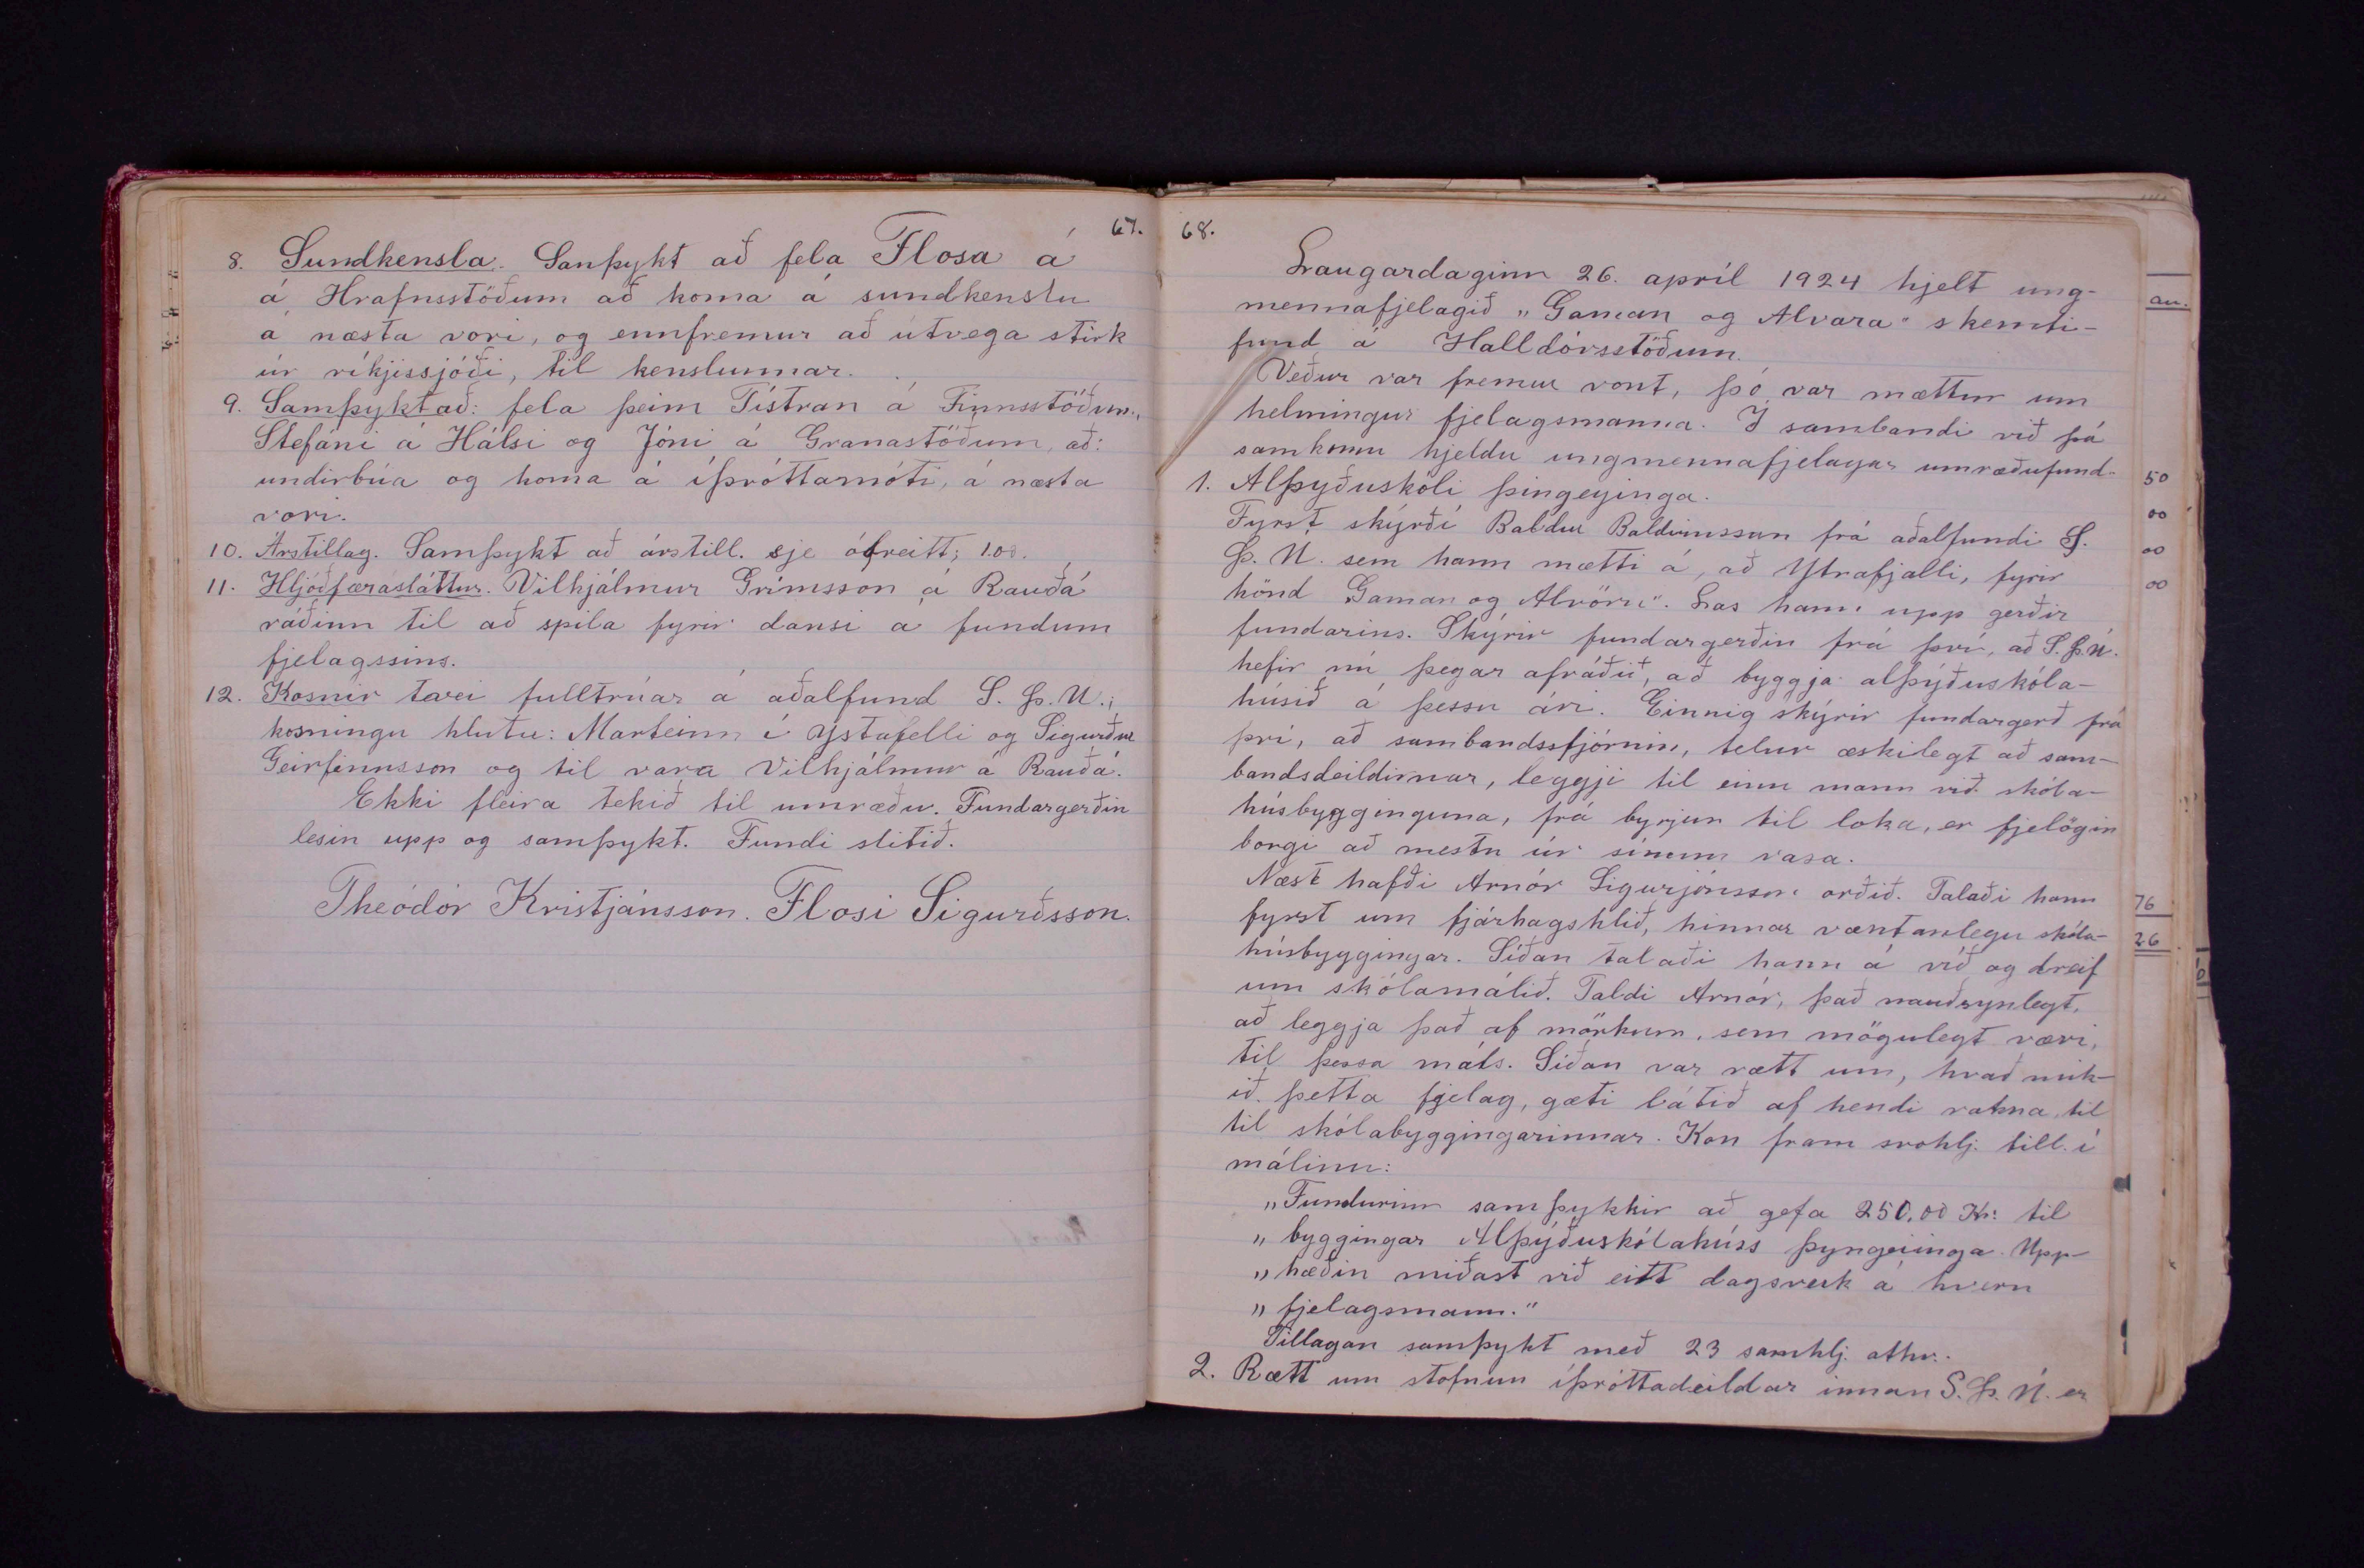 67.
8. Sundkensla. Sanþykt að fela Flosa á
á Hrafnsstöðum að koma á sundkenslu
á næsta vori, og ennfremur að útvega stirk
úr ríkjissjóði, til kenslunnar.
9. Samþykt að: fela þeim Tístran á Finnsstöðum,
Stefáni á Hálsi og Jóni á Granastöðum, að:
undirbúa og koma á íþróttamóti, á næsta
vori.
10. Árstillag. Samþykt að árstill. sje ófreitt; 1.00.
11. Hljóðfærasláttur. Vilhjálmur Grímsson á Rauðá
ráðinn til að spila fyrir dansi a fundum
fjelagssins.
12. Kosnir tveir fulltrúar á aðalfund S. Þ. U.;
kosningu hlutu: Marteinn í Ystafelli og Sigurður
Geirfinnsson og til vara Vilhjálmur á Rauðá.
Ekki fleira tekið til umræðu. Fundargerðin
lesin upp og samþykt. Fundi slitið.
Theódór Kristjánsson. Flosi Sigurðsson.
68.
Laugardaginn 26. apríl 1924 hjelt ung-
mennafjelagið „Gaman og Alvara“ skemti-
fund á Halldórsstöðum.
Veður var fremur vont, þó var mættur um
helmingur fjelagsmanna. I sambandi við þá
samkomu hjeldu ungmennafjelagar umræðufund.
1. Alþyðuskóli þingeyinga.
Fyrst skýrði Baldur Baldvinsson frá aðalfundi S.
Þ. U. sem hann mætti á, að Ytrafjalli, fyrir
hönd „Gaman og Alvöru“. Las hann upp gerðir
fundarins. Skýrir fundargerðin frá því, að S.Þ.U.
hefir nú þegar afráðið, að byggja alþýðuskóla-
húsið á þessu ári. Einnig skýrir fundargerð frá
því, að sambandssfjórnin, telur æskilegt að sam-
bandsdeildirnar, leggji til einn mann við skóla-
húsbygginguna, frá byrjun til loka, er fjelögin
borgi að mestu úr sínum vasa.
Næst hafði Arnór Sigurjónsson orðið. Talaði hann
fyrst um fjárhagshlið, hinnar væntanlegu skóla-
húsbyggingar. Síðan talaði hann á víð og dreif
um skólamálið. Taldi Arnór, það nauðsynlegt,
að leggja það af mörkum, sem mögulegt væri,
til þessa máls. Síðan var rætt um, hvað mik-
ið þetta fjelag, gæti látið af hendi rakna, til
til skólabyggingarinnar. Kon fram svohlj. till. í
málinu:
„Fundurinn samþykkir að gefa 250,00 Kr: til
„ byggingar Alþýðuskólahúss þyngeiinga. Upp-
„ hæðin miðast við eitt dagsverk á hvern
„ fjelagsmann.“
Tillagan samþykt með 23 samhlj. athv.
2. Rætt um stofnun íþróttadeildar innan S. Þ. U. er
au.
50
00
00
00
76
26